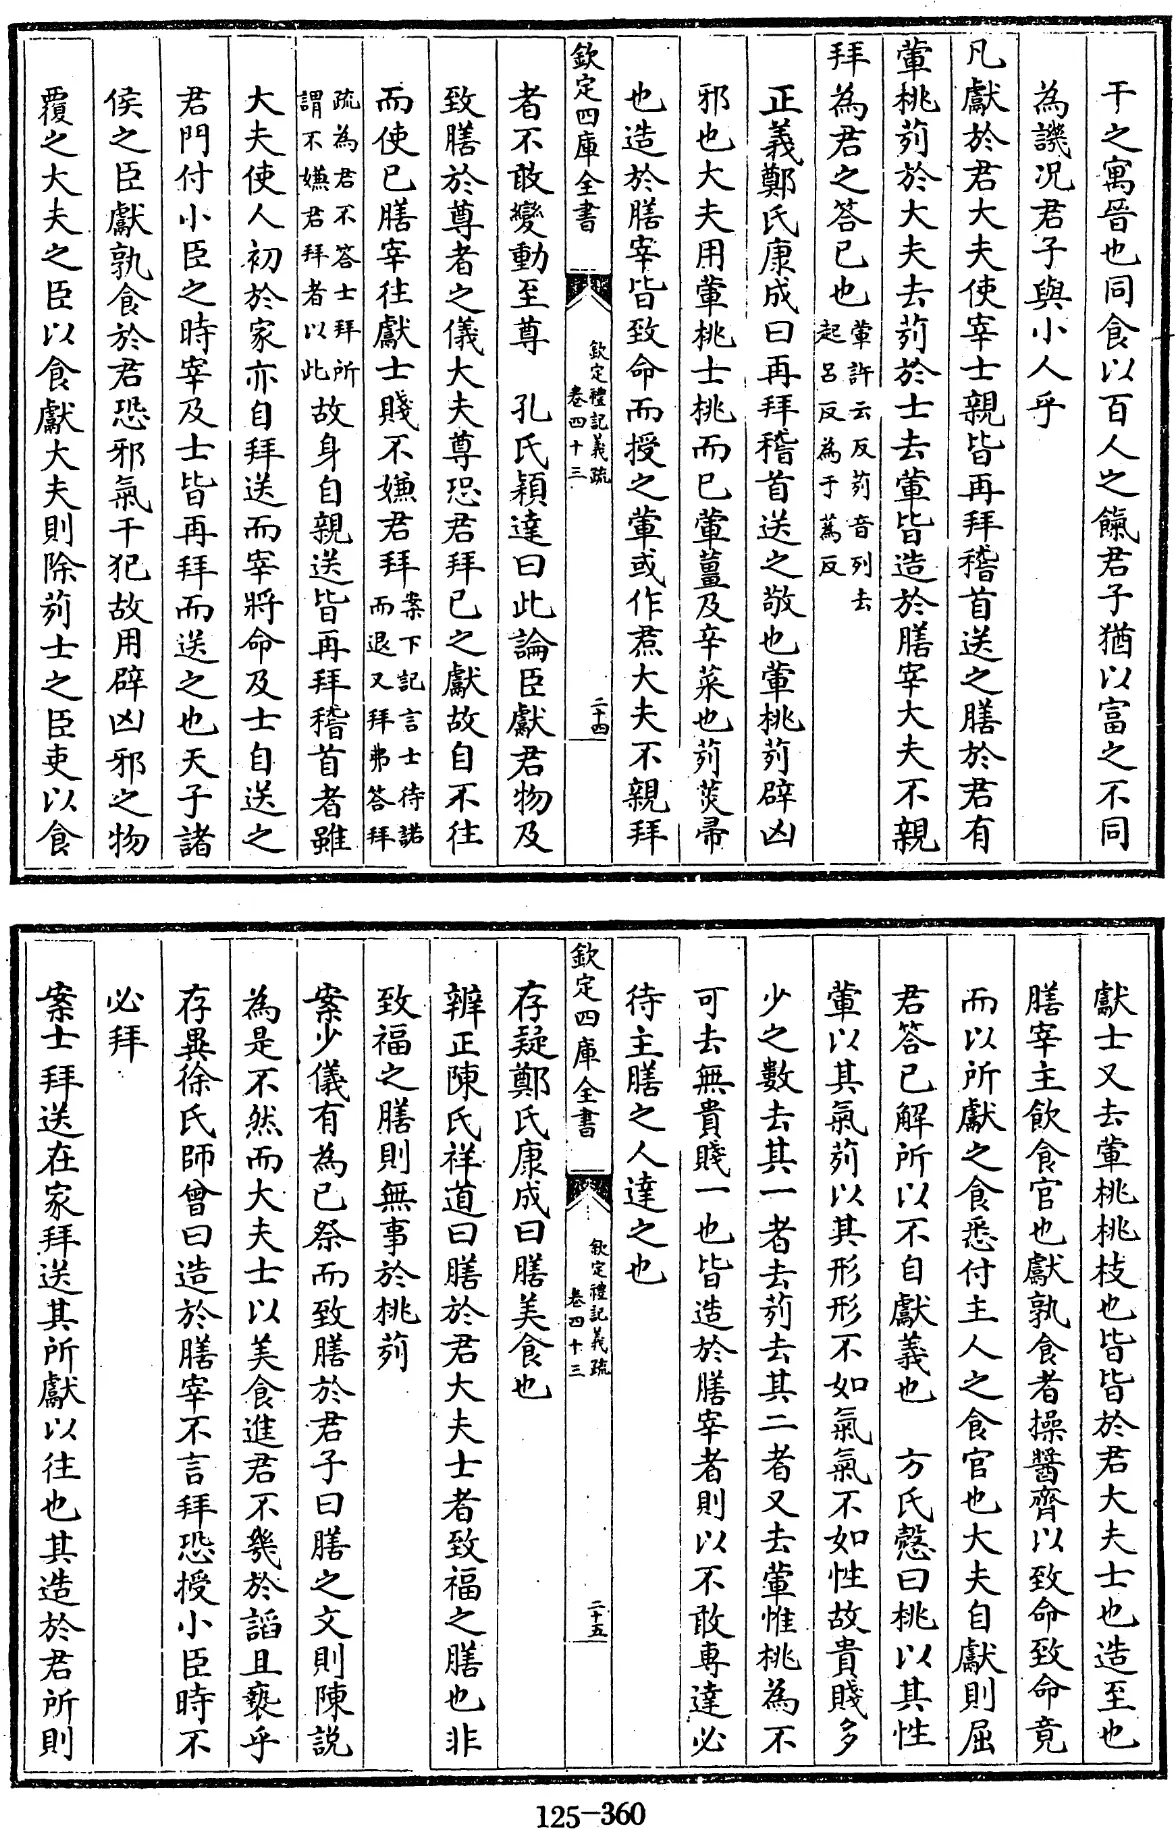 干之寓晉也同食以百人之餼君子猶以富之不同
為譏况君子與小人乎
凡獻於君大夫使宰士親皆再拜稽首送之膳於君有
葷桃茢於大夫去茢於士去葷皆造於膳宰大夫不親
拜為君之答已也葷許云反茢音列去
起呂反為于蒍反
正義鄭氏康成曰再拜稽首送之敬也葷桃茢辟凶
邪也大夫用葷桃士桃而已葷薑及辛菜也茢菼帚
也造於膳宰皆致命而授之葷或作焄大夫不親拜
欽定四庫全書
欽定禮記義疏
卷四十三
二十四
者不敢變動至尊　孔氏穎達曰此論臣獻君物及
致膳於尊者之儀大夫尊恐君拜已之獻故自不往
而使已膳宰往獻士賤不嫌君拜案下記言士待諾
而退又拜弗答拜
疏為君不答士拜所
謂不嫌君拜者以此故身自親送皆再拜稽首者雖
大夫使人初於家亦自拜送而宰將命及士自送之
君門付小臣之時宰及士皆再拜而送之也天子諸
侯之臣獻孰食於君恐邪氣干犯故用辟凶邪之物
覆之大夫之臣以食獻大夫則除茢士之臣吏以食
獻士又去葷桃桃枝也皆皆於君大夫士也造至也
膳宰主飲食官也獻孰食者操醬齊以致命致命竟
而以所獻之食悉付主人之食官也大夫自獻則屈
君答已解所以不自獻義也　方氏慤曰桃以其性
葷以其氣茢以其形形不如氣氣不如性故貴賤多
少之數去其一者去茢去其二者又去葷惟桃為不
可去無貴賤一也皆造於膳宰者則以不敢專達必
待主膳之人達之也
欽定四庫全書
欽定禮記義疏
卷四十三
二十五
存疑鄭氏康成曰膳美食也
辨正陳氏祥道曰膳於君大夫士者致福之膳也非
致福之膳則無事於桃茢
案少儀有為已祭而致膳於君子曰膳之文則陳說
為是不然而大夫士以美食進君不幾於謟且䙝乎
存異徐氏師曾曰造於膳宰不言拜恐授小臣時不
必拜
案士拜送在家拜送其所獻以往也其造於君所則
125-360